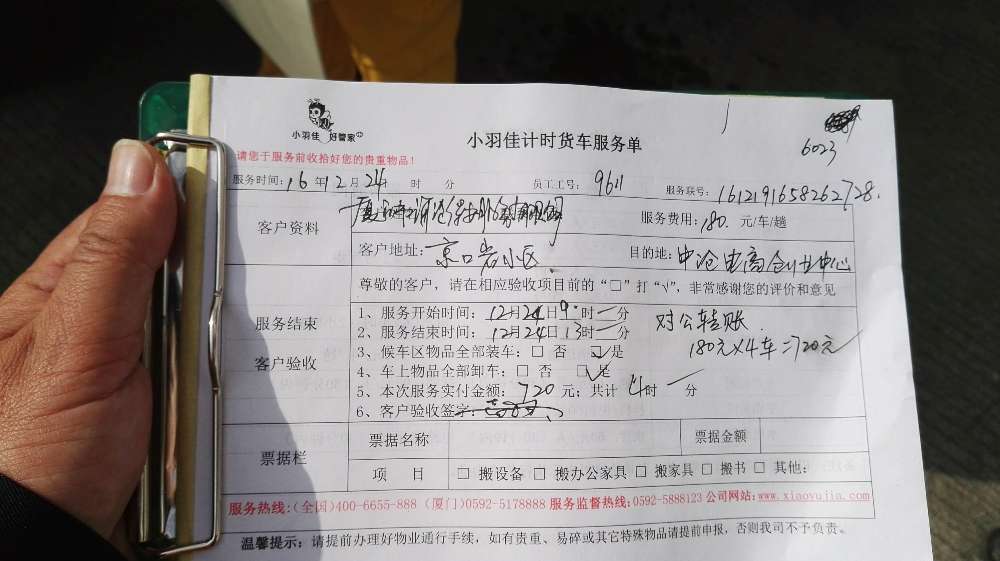 小羽佳 好管家
小羽佳计时货车服务单
6023
请您于服务前收拾好您的贵重物品！
服务时间：16年12月24 时 分 员工工号：9611 服务联号：1612191658262728
客户资料
服务费用：180 元/车/趟
客户地址：京口岩小区 目的地：中沧电商创业中心
尊敬的客户，请在相应验收项目前的“□”打“√”，非常感谢您的评价和意见
服务结束
客户验收
1、服务开始时间：12月24日9时 分
2、服务结束时间：12月24日13时 分
对公转账
180元×4车=720元
3、候车区物品全部装车：□ 否 ☑是
4、车上物品全部卸车：□ 否 ☑是
5、本次服务实付金额：720 元；共计 4时 分
6、客户验收签字：
票据栏
票据名称 票据金额
项 目 □ 搬设备 □ 搬办公家具 □ 搬家具 □ 搬书 □ 其他：
服务热线：(全国)400-6655-888 (厦门)0592-5178888 服务监督热线：0592-5888123 公司网站：www.xiaoyujia.com
温馨提示：请提前办理好物业通行手续，如有贵重、易碎或其它特殊物品请提前申报，否则我司不予负责。